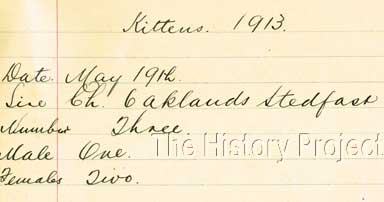 Kittens. 1913.
Date. May 19th.
Sire Ch. Oaklands Stedfast
Number Three
Male One.
The History Project
Females Two.